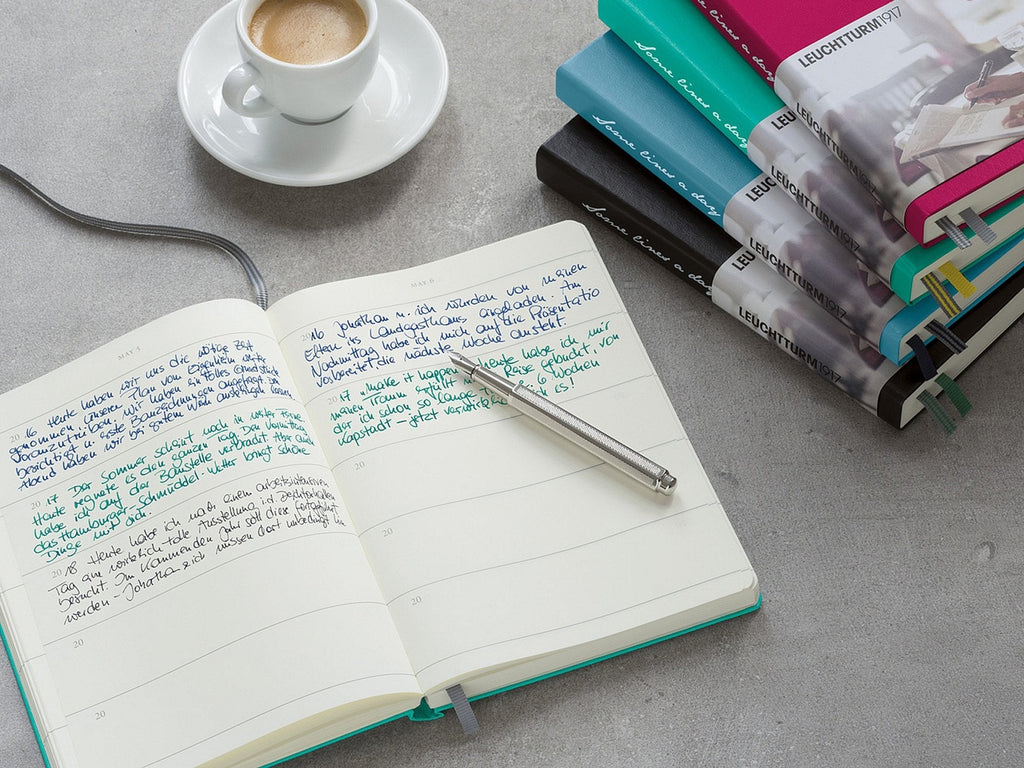 MAY 5
2016 Heute haben wir uns die nötige Zeit
genommen, unseren Plan vom Eigenheim weiter
voranzutreiben. Wir haben ein tolles Grundstück
besichtigt u. erste Bauzeichnungen angefragt. Am
Abend haben wir bei gutem Wein
2017 Der Sommer scheint noch in weiter Ferne.
Heute regnete es den ganzen Tag. Den Vormittag
habe ich auf der Baustelle verbracht. Aber auch
das Hamburger-Schmuddel-Wetter bringt schöne
Dinge mit sich.
2018 Heute habe ich nach einem arbeitsintensiven
Tag eine wirklich tolle Ausstellung i.d. Deichtorhallen
besucht. Im kommenden Jahr soll diese fortgeführt
werden - Johathan u. ich müssen dort unbedingt hin
20
20
MAY 6
2016 Jonathan u. ich wurden von meinen
Eltern ins Landgasthaus eingeladen. Am
Nachmittag habe ich mich auf die Präsentatio
vorbereitet, die nächste Woche ansteht.
2017 "make it happen" Heute habe ich mir
meinen Traum erfüllt Reise gebucht, von
der ich schon so lange 6 Wochen
Kapstadt - jetzt es!
20
20
20
Some lines a day
LEUCHTTURM1917
LEUCHTTURM1917
Some lines a day
LEU
LEUCHTTURM1917
Some lines a day
LEUC
LEUCHTTURM1917
Some lines a day
LEU
LEUCHTTURM1917